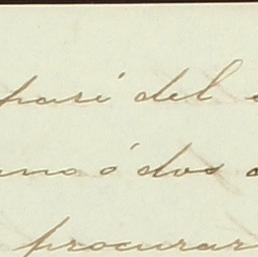 pasé del
uno ó dos
procurar